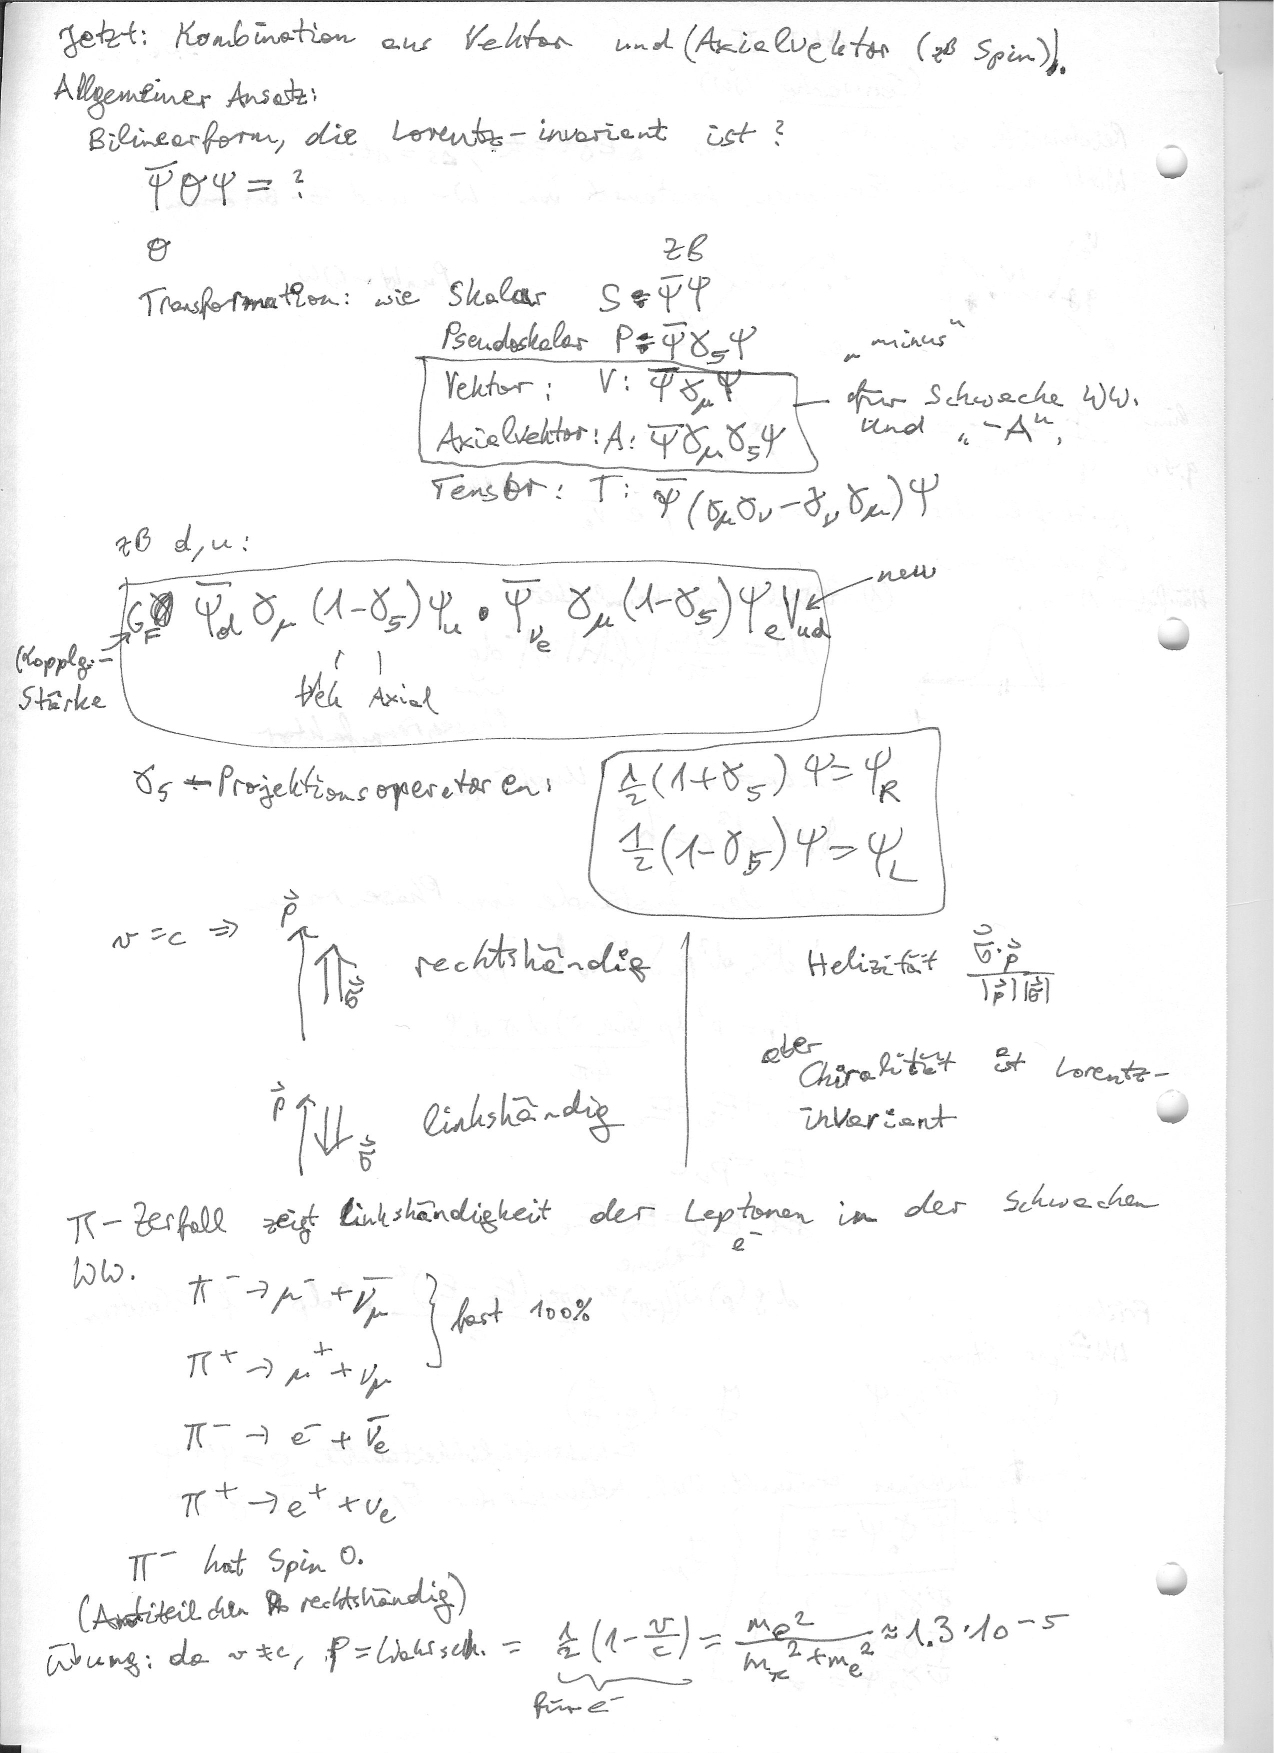 Jetzt: Kombination aus Vektor und (Axialvektor (zB Spin)).
Allgemeiner Ansatz:
Bilinearform, die Lorentz-invariant ist?
Ψ̄ΘΨ = ?
Θ zB
Transformation: wie Skalar S = Ψ̄Ψ
Pseudoskalar P = Ψ̄γ₅Ψ
Vektor: V: Ψ̄γ_μΨ
Axialvektor: A: Ψ̄γ_μγ₅Ψ
„minus“
für Schwache WW.
und „-A“,
Tensor: T: Ψ̄(γ_μγ_ν-γ_νγ_μ)Ψ
zB d,u:
G_F Ψ̄_d γ_μ (1-γ₅)Ψ_u · Ψ̄_νe γ_μ (1-γ₅)Ψ_e V_ud
new
(Kopplg.-
Stärke
Vek Axial
γ₅ - Projektionsoperatoren:
½(1+γ₅)Ψ=Ψ_R
½(1-γ₅)Ψ=Ψ_L
v=c ⇒ p⃗ σ⃗ rechtshändig
p⃗ σ⃗ linkshändig
Helizität σ⃗·p⃗ / |p⃗||σ⃗|
aber
Chiralität ist Lorentz-
invariant
π-Zerfall zeigt Linkshändigkeit der Leptonen in der Schwachen
e⁻
WW.
π⁻ → μ⁻ + ν̄_μ
fast 100%
π⁺ → μ⁺ + ν_μ
π⁻ → e⁻ + ν̄_e
π⁺ → e⁺ + ν_e
π⁻ hat Spin 0.
(Antiteilchen rechtshändig)
Übung: da v≠c, P=Wahrsch. = ½(1-v/c) = m_e²/(m_π²+m_e²) ≈ 1.3·10⁻⁵
für e⁻